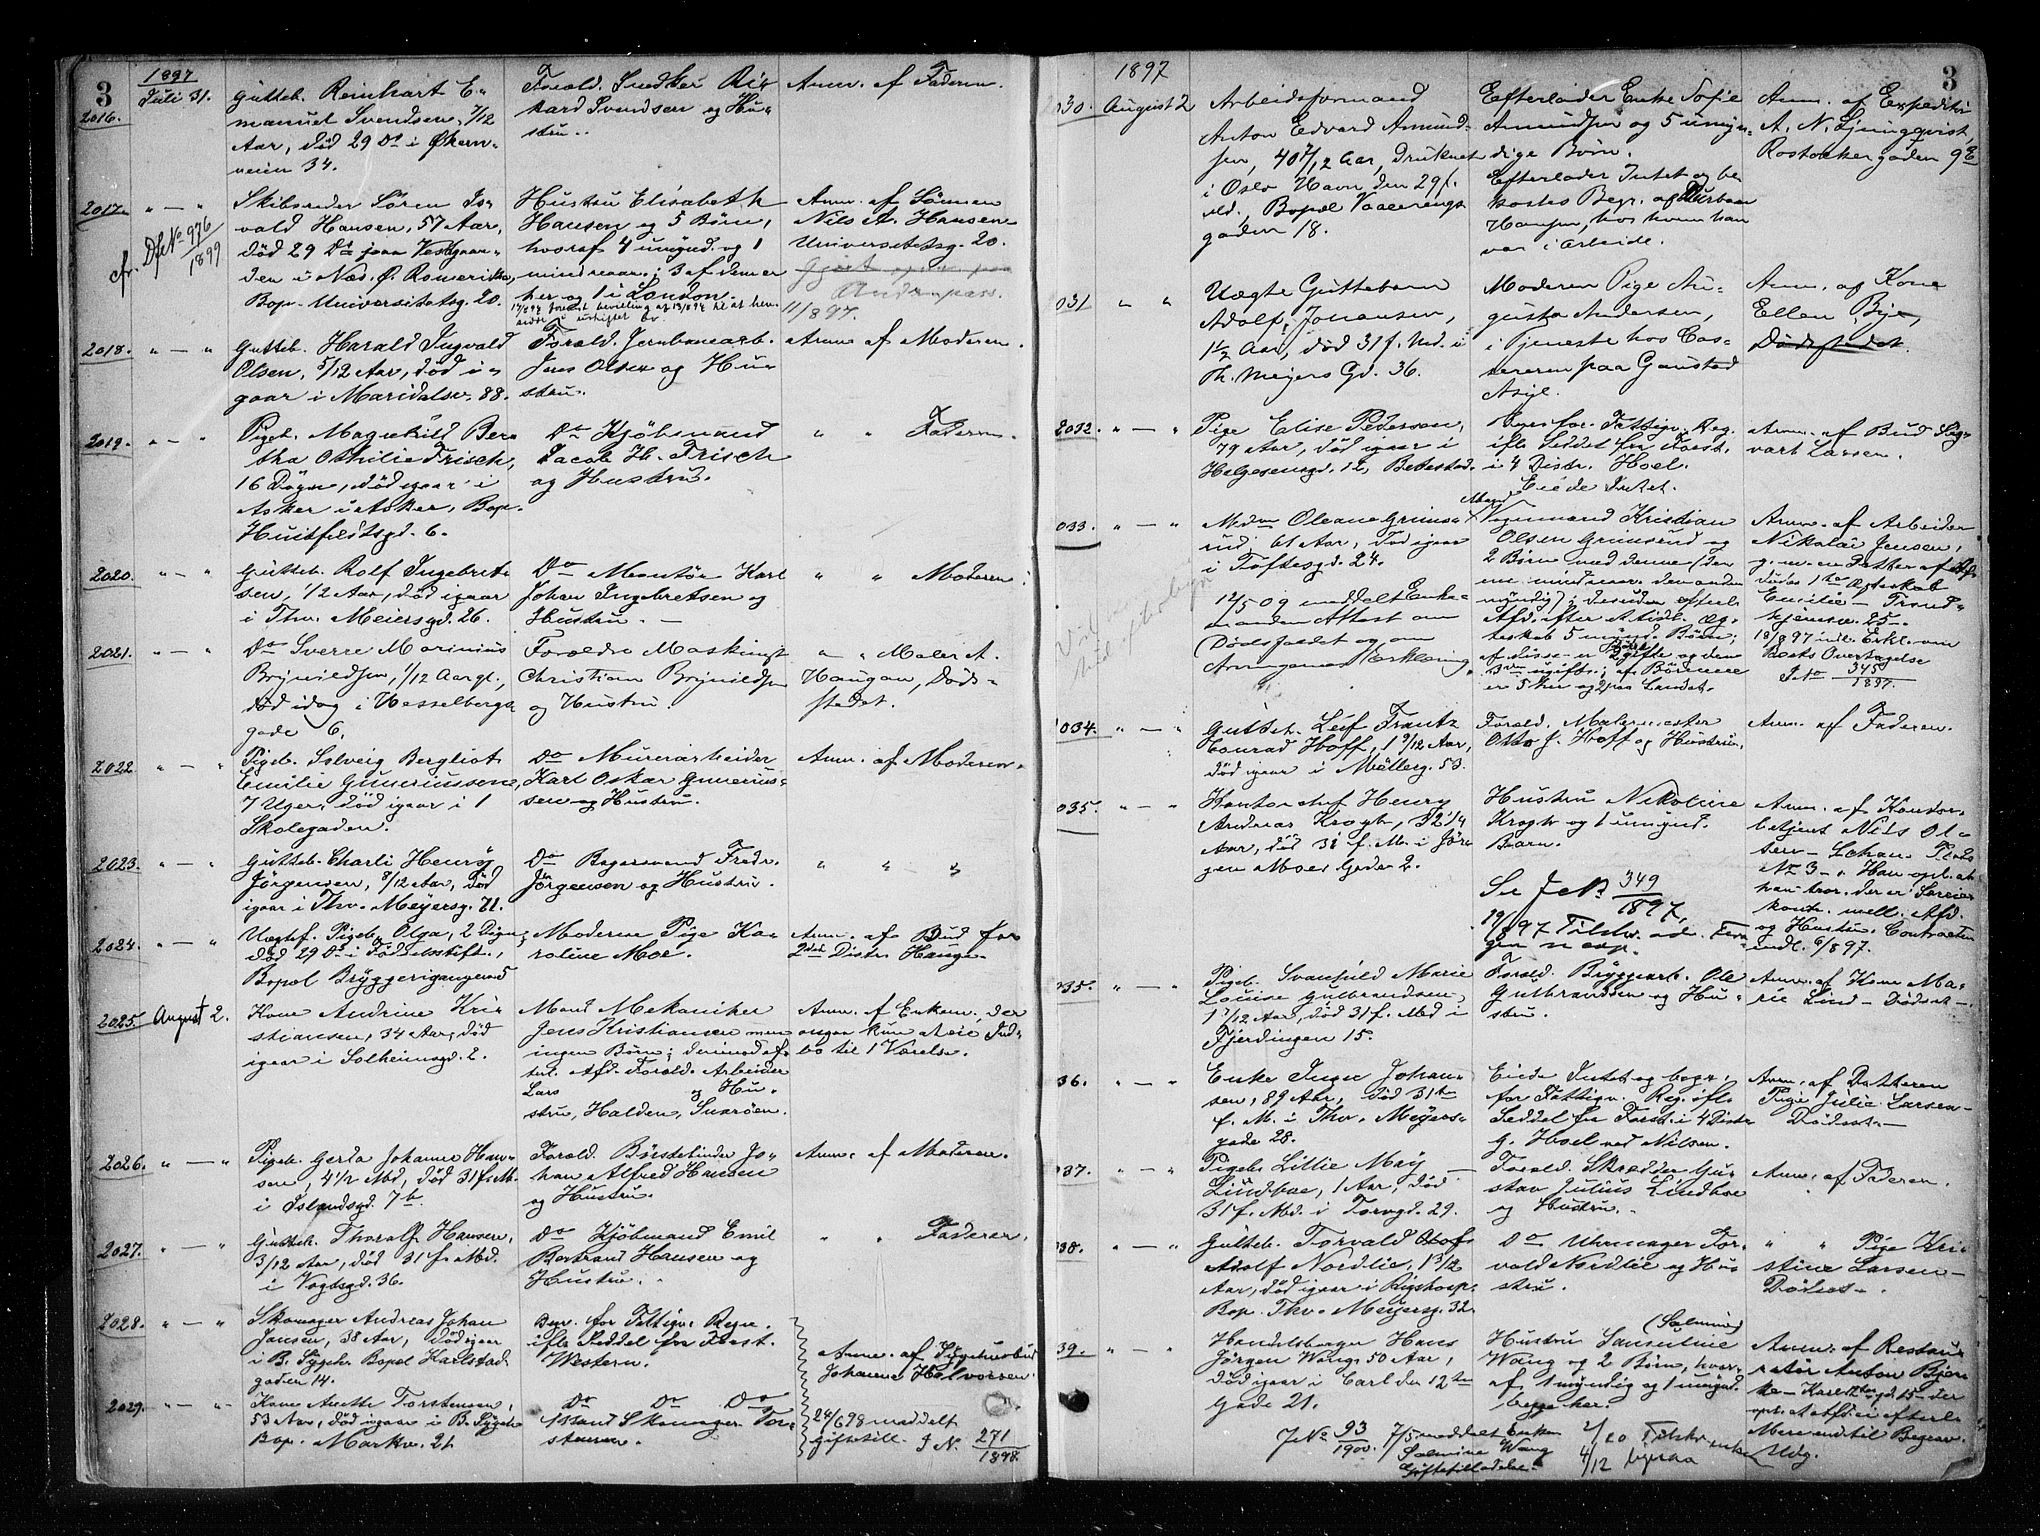 3
1897
2016. Juli 31.
Gutteb. Reinhart E-
manuel Svendsen, 7/12
Aar, død 29 Ds i Økern-
veien 34.
Forald. Snedker Ri-
kard Svendsen og Hu-
stru.
Anm. af Faderen.
2017. " — "
cfr. Df. No 976/1899
Skibsreder Søren Is-
vald Hansen, 57 Aar,
død 29 Ds paa Vestgaar-
den i Næs, Ø. Romerike,
Bop. Universitetsg. 20.
Hustru Elisabeth
Hansen og 5 Børn,
hvoraf 4 umynd. og 1
mindreaar.; 3 af dem er
her og 1 i London.
Anm. af Sønnen
Nils A. Hansen
Universitetsg. 20.
11/8 97.
2018. " — "
Gutteb. Harald Ingvald
Olsen, 5/12 Aar, død i-
gaar i Maridalsv. 88.
Forald. Jernbanearb.
Jens Olsen og Hu-
stru.
Anm. af Moderen.
2019. " — "
Pigeb. Magnhild Ber-
tha Othilie Frisch,
16 Døgn, død igaar i
Asker i Asker, Bop.
Huitfeldtsgd. 6.
Do Kjøbmand
Jacob H. Frisch
og Hustru.
" " Faderen.
2020. " — "
Gutteb. Rolf Ingebret-
sen, 1/2 Aar, død igaar
i Thv. Meiersgd. 26.
Do Montør Karl
Johan Ingebretsen og
Hustru. —
" " Moderen.
2021. " — "
Do Sverre Marinius
Brynildsen, 1/12 Aar gl.,
død idag i Hesselbergs
gade 6.
Forældre Maskinist
Christian Brynildsen
og Hustru.
" " Maler A.
Haugan, Døds-
stedet.
2022 " — "
Pigeb. Solveig Bergliot
Emilie Gunerussen
7 Uger, død igaar i 1
Skolegaden.
Do Murerarbeider
Karl Oskar Gunerius-
sen og Hustru.
Anm. af Moderen.
2023. " — "
Gutteb. Charli Henry
Jørgensen, 8/12 Aar, død
igaar i Thv. Meyersg. 71.
Do Bagersvend Fredr.
Jørgensen og Hustru.
" " "
2024. " — "
Uægtef. Pigeb. Olga, 2 Døgn,
død 29 Ds i Fødselsstift.,
Bopæl Bryggerigangen 5
Moderen Pige Ka-
roline Moe.
Anm. af Bud for
2det Distr. Hauge.
2025. August 2.
Kone Andrine Kri-
stiansen, 34 Aar, død
igaar i Solheimsgd. 2.
Mand Mekaniker
Jens Kristiansen men
ingen Børn; derimod ef-
terl. Afd. Forald. Arbeider
Lars og Hu-
stru, Halden, Snarøen.
Anm. af Enken, der
ongav kun at eie Ind-
bo til 1 Værelse.
2026. " — "
Pigeb. Gerda Johanne Han-
sen, 4 1/2 Md, død 31 f. M.
i Islandsgd. 7 b.
Forald. Børstebinder Jo-
han Alfred Hansen
og Hustru.
Anm. af Moderen.
2027. " — "
Gutteb. Thoralf Hansen,
3/12 Aar, død 31 f. Md.
i Vogtsgd. 36.
Do Kjøbmand Emil
Bertrand Hansen og
Hustru.
" " Faderen.
2028. " — "
Skomager Andreas Johan
Jansen, 38 Aar, død igaar
i B. Sygeh. Bopæl Karlstad
gaden 14.
Begr. for Fattigv. Regn.
ifle Seddel fra Forst.
Western.
Anm. af Sygehusbud
Johannes Halvorsen.
2029. " — "
Kone Anette Torstensen,
53 Aar, død igaar i B. Sygeh.
Bop. Markv. 21
Do Do Do
Mand Skomager Tor-
stensen.
24/6 98 meddelt
giftetill. J.N. 271/1898.
3
1897
030. August 2
Arbeidsformand
Anton Edvard Amund-
sen, 40 7/12 Aar, druknet
i Oslo Havn den 29 f.
Md., Bopæl Vaalerengs
gaden 18.
Efterlader Enke Sofie
Amundsen og 5 umyn-
dige Børn.
Efterlader Intet og be-
kostes Begr. af Durbaan
Hansen, hos hvem han
var i Arbeide.
Anm. af Expeditør
A. N. Ljungqvist,
Rostockergaden 9 E
031. " "
Uægte Guttebarn
Adolf Johansen,
1 1/2 Aar, død 31 f. Md. i
Th. Meyers Gd. 36.
Moderen Pige Au-
gusta Andersen,
i Tjeneste hos Cas-
sereren paa Gaustad
Asyl.
Anm. af Kone
Ellen Bye,
Dødsstedet.
2032. " — "
Pige Elise Pedersen,
79 Aar, død igaar i
Helgesensgd. 12, Betestad.
Begr. for Fattigv. Reg.
ifle Seddel fra Forst.
i 4 Distr. Hoel.
Eiede Intet.
Anm. af Bud Sig-
vart Larsen.
033. " — "
Mdm Oleane Grims-
rud, 61 Aar, død igaar
i Toftesgd. 24.
12/5 09 meddelt Enke-
manden Attest om
Dødsfaldet og om
Arvingernes Erklæring.
Mand
Vognmand Kristian
Olsen Grimsrud og
2 Børn med denne (den
ene mindreaar. den anden
myndig); desuden efterl.
Afd. efter et tidl. Æg-
teskab 5 mynd. Børn;
af disse er 2 gifte og den
3die ugift; af Børnene
er 5 her og 2 paa Landet.
Anm. af Arbeider
Nikolai Jensen,
g. m. en Datter af Af-
dødes 1ste Ægteskab
Emilie — Trond-
hjemsv. 25.
18/8 97 indl. Erkl. om
Boets Overtagelse
J. No 345/1897.
034. " — "
Gutteb. Leif Frantz
Conrad Hoff, 1 9/12 Aar,
død igaar i Møllerg. 53.
Forald. Malermester
Otto J. Hoff og Hustru.
Anm. af Faderen.
035. " — "
Kontorchef Henry
Andreas Krogh, 32 1/4
Aar, død 31 f. M. i Jør-
gen Moes Gade 2.
Hustru Nikoline
Krogh og 1 umynd.
Barn.
Se J. No 349/1897,
Anm. af Kontor-
betjent Nils Ol-
sen — Schan. Plads
No 3 —
og Hustru. Contracten
indl. 6/8 97.
035. " — "
Pigeb. Svanhild Marie
Louise Gulbrandsen,
1 7/12 Aar, død 31 f. Md i
Fjerdingen 15.
Forald. Bryggearb. Ole
Gulbrandsen og Hu-
stru.
Anm. af Kone Ma-
rie Lind — Dødsst —.
36. " — "
Enke Inger Johan-
sen, 89 Aar, død 31te
f. M. i Thv. Meyers-
gade 28.
Eiede Intet og begr.
for Fattigv. Reg. ifl.
Seddel fra Forst. i 4 Distr.
g. Hoel ved Nilsen.
Anm. af Datteren
Pige Julie Larsen —
Dødsst. —
037. " — "
Pigeb. Lillie May
Lindboe, 1 Aar, død
31 f. Md. i Torvgd. 29.
Forald. Skrædder Gu-
stav Julius Lindboe
og Hustru.
Anm. af Faderen.
038. " — "
Gutteb. Torvald Olaf
Adolf Nordlie, 1 3/12
Aar, død igaar i Rigshosp.
Bop. Thv. Meyersg. 32.
Do Uhrmager Tor-
vald Nordlie og Hu-
stru.
" " Pige Kri-
stine Larsen —
Dødsst —.
39. " — "
Handelsborger Hans
Jørgen Wang, 50 Aar,
død igaar i Carl den 12tes
Gade 21.
J. No 93/1900. 7/5 meddelt Enken
Salmine Wang
Giftetilladelse.
(Salmine)
Hustru
Wang og 2 Børn, hvor-
af 1 myndig og 1 umynd.
begge her.
Anm. af Restau-
ratør Anton Bjer-
ke — Karl 12tes gd. 15 — der
opl. at Afd. ei efterl.
Mere end til Begrav.
Udg.